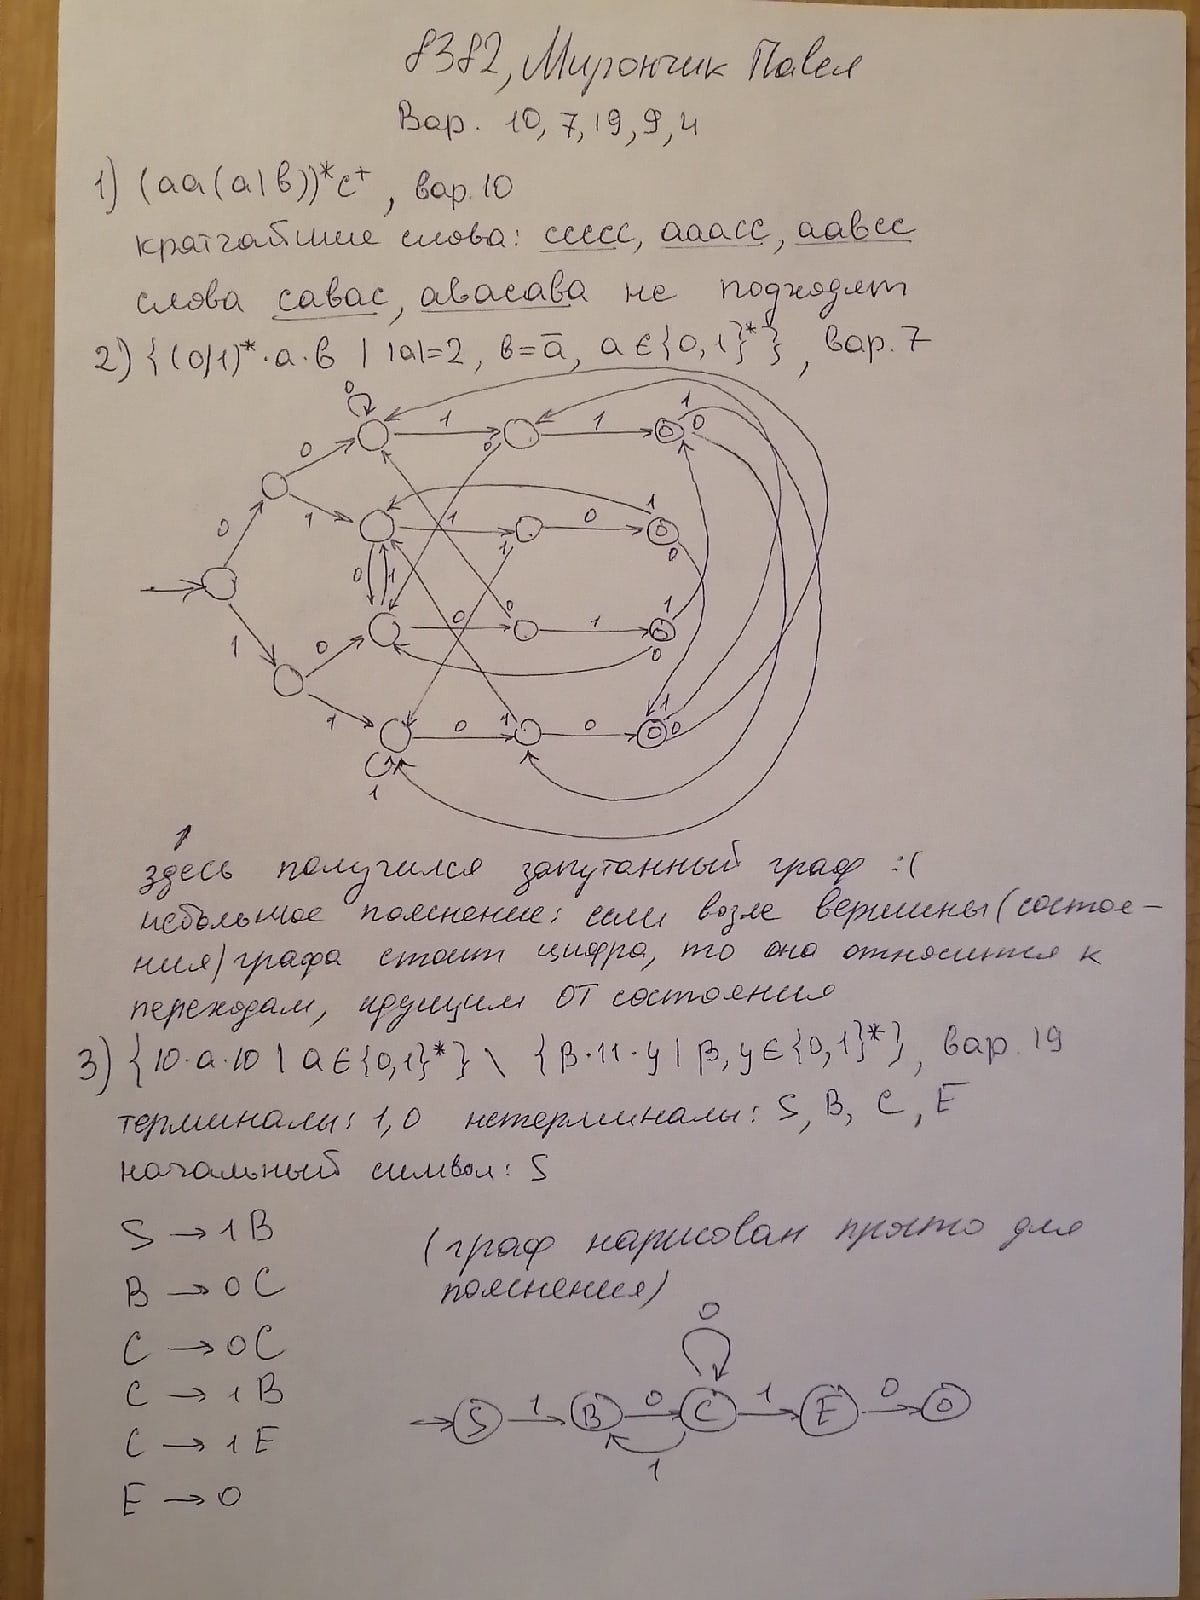 8382, Мирончик Павел
Вар. 10, 7, 19, 9, 4
1) (аа(а|в))*с⁺, вар. 10
кратчайшие слова: ссссс, ааасс, аавсс
слова савас, авасава не подходят
2) {(0|1)*·a·b | |a|=2, b=a̅, a∈{0,1}*}, вар. 7
0
0 1 1 1 0
0
1 1 0 1
1 0
0 1 0 1
1 0 0 1 0
1 0 1 0 1 0
1
здесь получился запутанный граф :(
небольшое пояснение: если возле вершины (состоя-
ния) графа стоит цифра, то она относится к
переходам, идущим ОТ состояния
3) {10·a·10 | a∈{0,1}*} \ {β·11·y | β,y∈{0,1}*}, вар. 19
терминалы: 1,0 нетерминалы: S, B, C, E
начальный символ: S
S → 1B
B → 0C
C → 0C
C → 1B
C → 1E
E → 0
(граф нарисован просто для
пояснения)
0
S 1 B 0 C 1 E 0
1